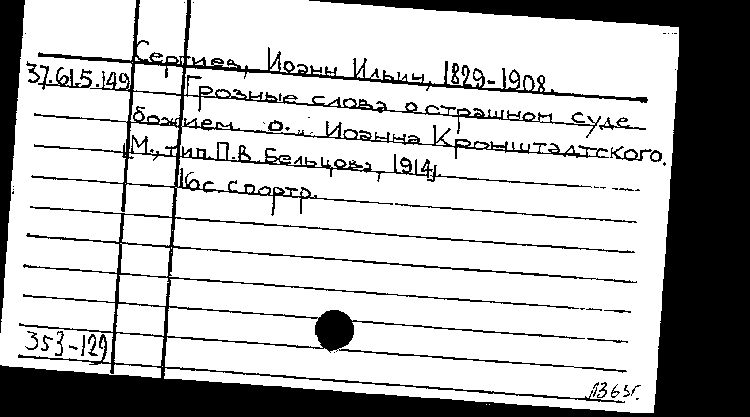 Сергиев, Иоанн Ильич, 1829-1908.
37.61.5.149
Грозные слова о страшном суде
божием о. Иоанна Кронштадтского.
М., тип. П.В. Бельцова, 1914,
16с. с портр.
353-129